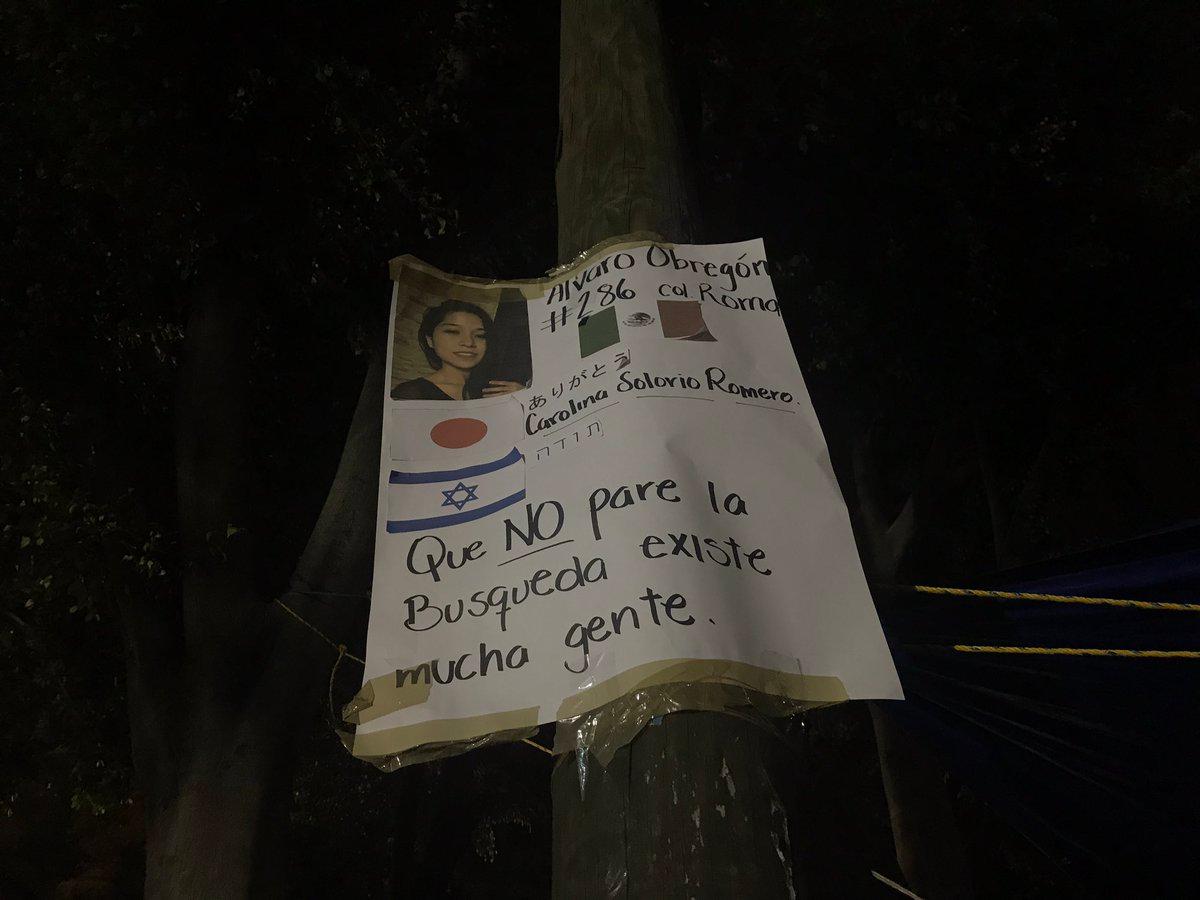 Alvaro Obregón
#286 col Roma
ありがとう
Carolina Solorio Romero.
תודה
Que NO pare la
Busqueda existe
mucha gente.